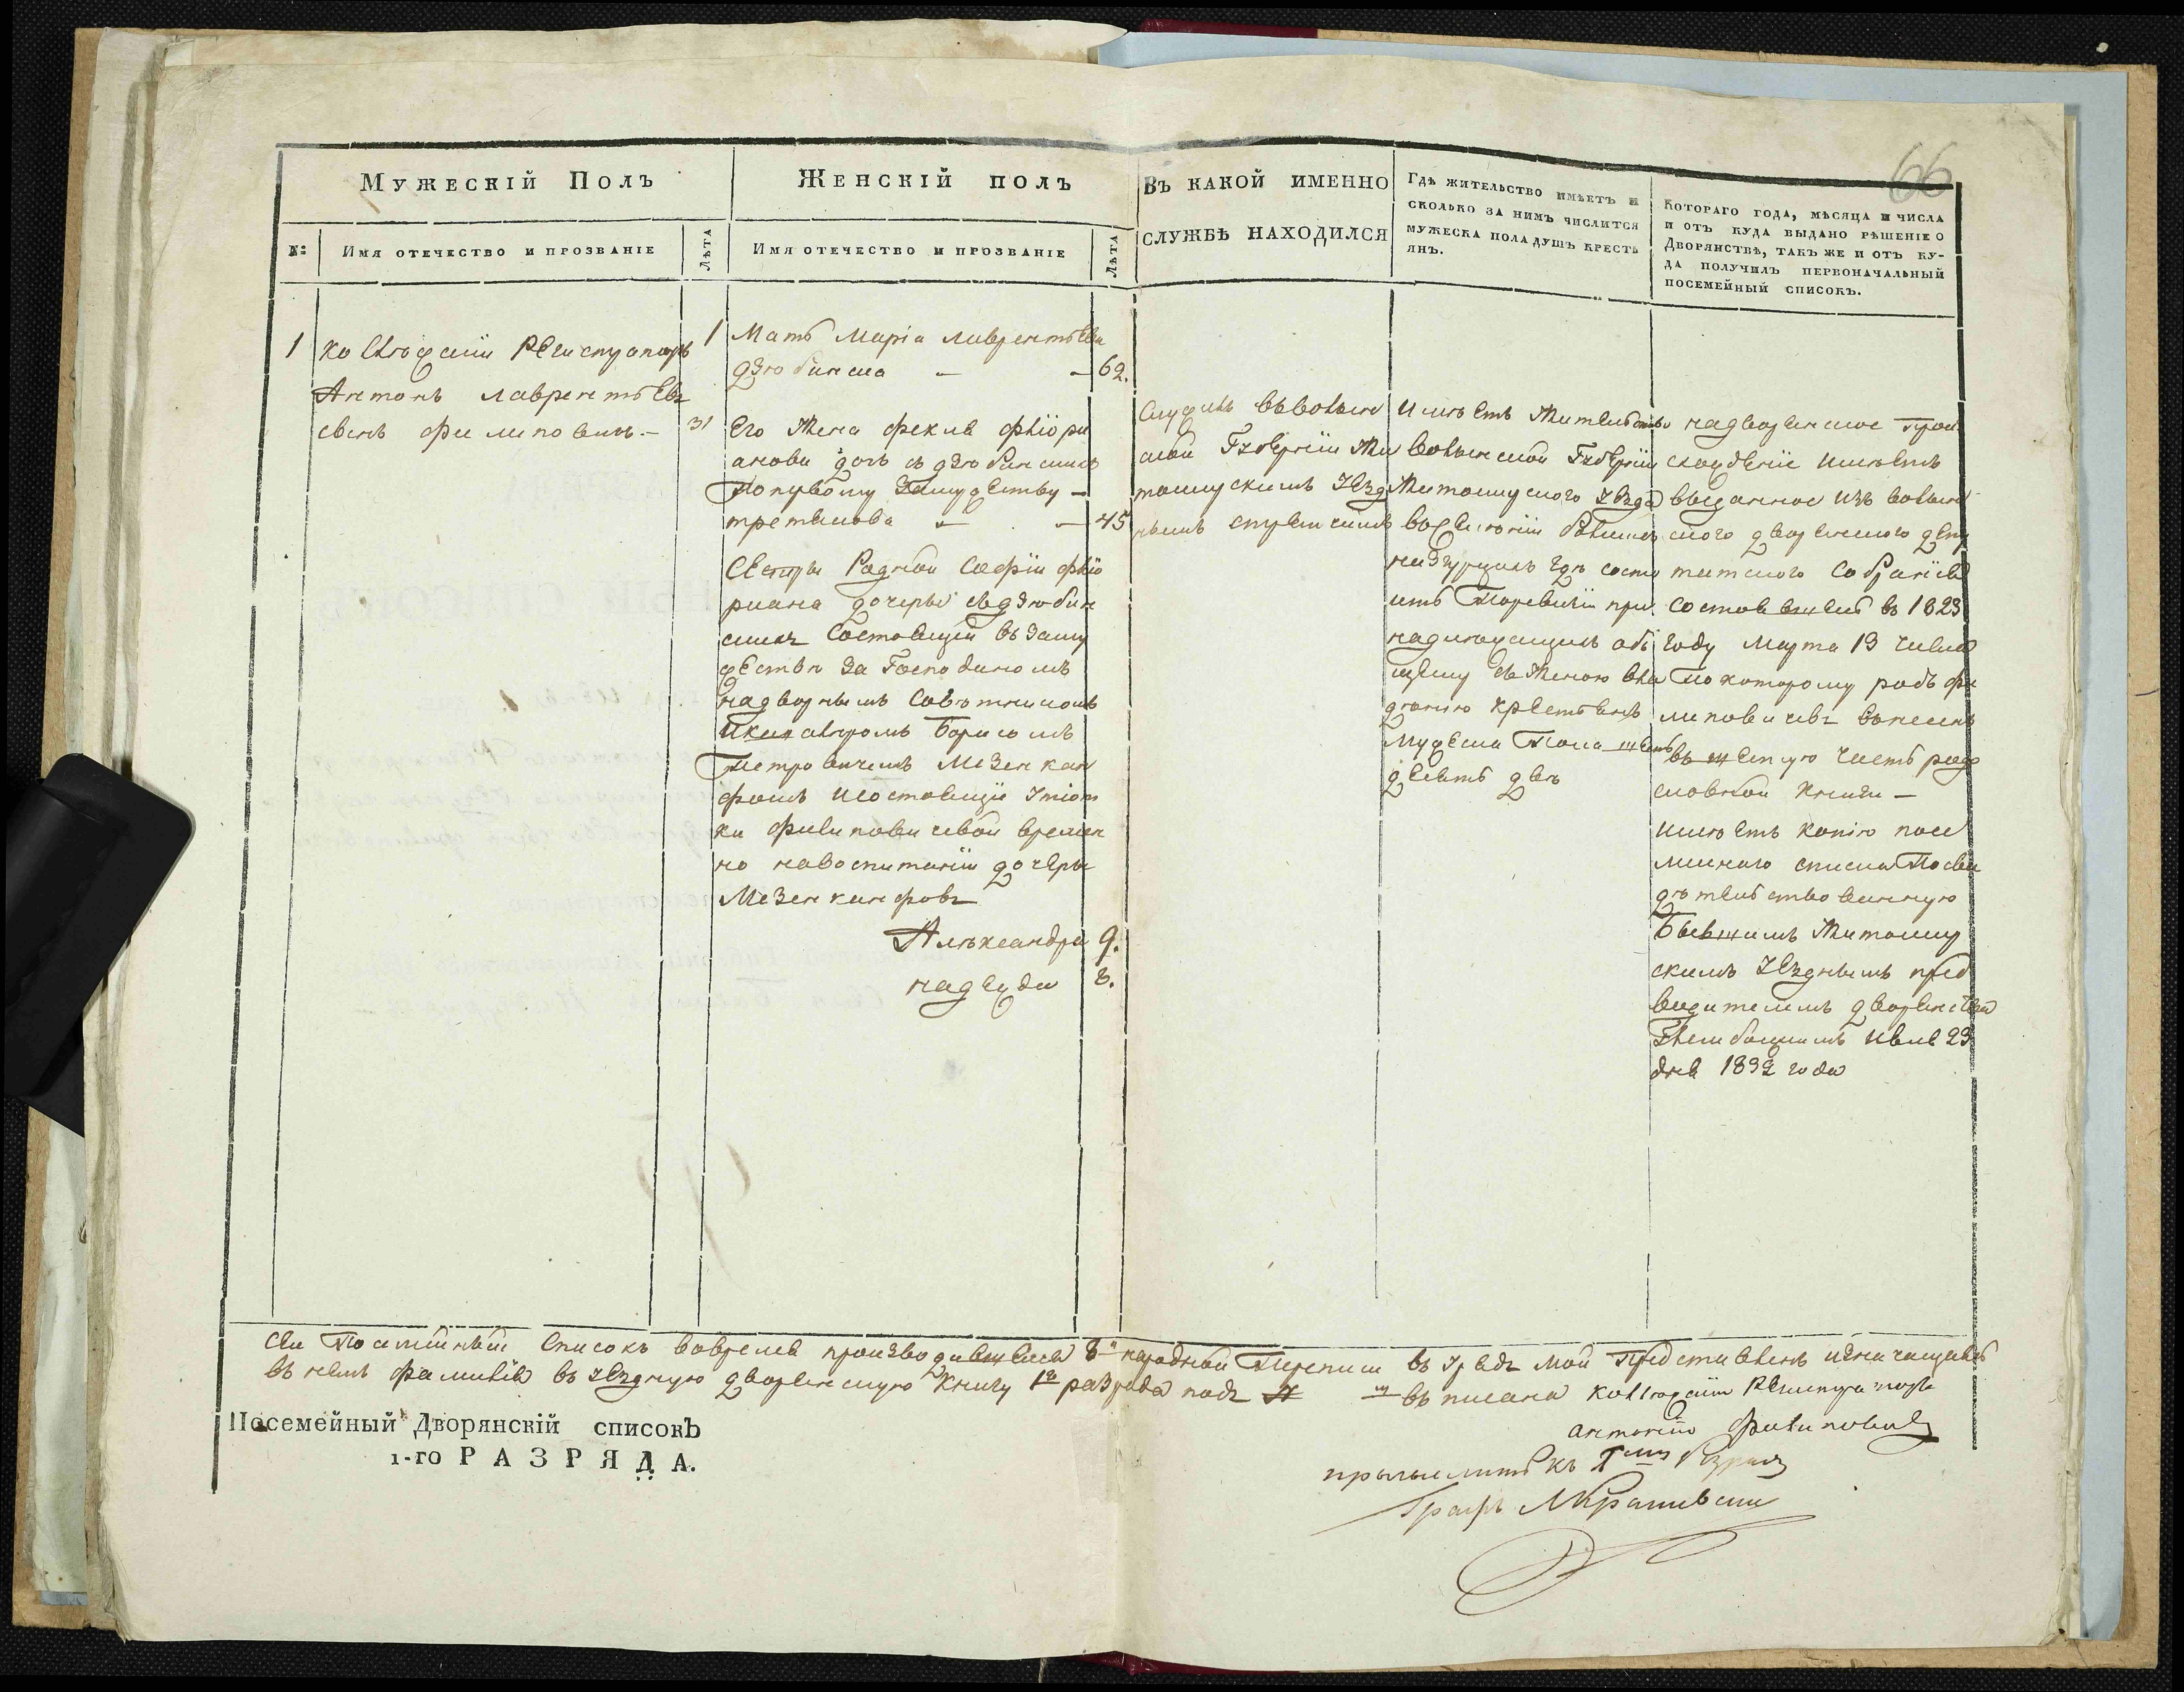 66
Мужескій Полъ
Женскій полъ
Въ какой именно
службѣ находился
Гдѣ жительство имѣетъ и
сколько за нимъ числится
мужеска пола душъ кресть
янъ.
Котораго года, мѣсяца и числа
и отъ куда выдано рѣшеніе о
Дворянствѣ, такъ же и отъ ку-
да получилъ первоначальный
посемейный списокъ.
№:
Имя отечество и прозваніе
Лѣта
Имя отечество и прозваніе
Лѣта
1
Колѣжскій Регистраторъ
Антонъ Лаврентьевъ
сынъ Филиповичъ.-
31
1
Мать Марія Лаврентьева
Дзюбинска - - 62.
Его Жена Фекля Флiори
анова дочь съ Дзюбинскихъ
По первому Замужеству -
третякова - - 45
Сестры Родной Софіи Флiо
риана дочеры съ Дзюбин
скихъ Состоящей въ Заму
жествѣ За Господиномъ
надворнымъ Совѣтникомъ
Борисомъ
Петровичемъ Мезенкам
фомъ и состоящіе У тіот
ки Филиповичевой времен
но на воспитаніи дочеры
Мезенкамфовъ
Алѣксандра 9.
надежда 8.
Служитъ въ Волын
ской Губерніи Жи
томирскимъ Уезд
нымъ стряпчимъ
Имѣетъ Жительство
Волынской Губерніи
Житомирского Уезда
въ селеніи
гдѣ состо
итъ при
надлежащихъ об
щему съ Женою вла
дѣнію Крестьянъ
Мужеска Пола шесть
десятъ двѣ
на дворянское Прои
схождѣніе имѣетъ
выданное изъ Волын
ского дворянского депу
татского Собранія
состоявшееся въ 1823
году марта 13 числа
По которому родъ Фи
липовичевъ внесенъ
въ шестую Часть родо
словной Книги -
имѣетъ копію посе
мейнаго списка Посви
дѣтельствованную
Бывшимъ Житомир
скимъ Уезднымъ пред
водителемъ дворянства
июля 23
дня 1832 года
Сей Посемѣйный Списокъ во время производившейся 8й народной Переписи въ Урядъ мой Представленъ и значащаяся
въ немъ фамилія въ Уездную дворянскую Книгу 1го разряда подъ № въ писана Колѣжскій Регистраторъ
Антоній Филиповичъ
къ 1му Разряду
Графъ
Посемейный Дворянскій списокЪ
1-го РАЗРЯДА.